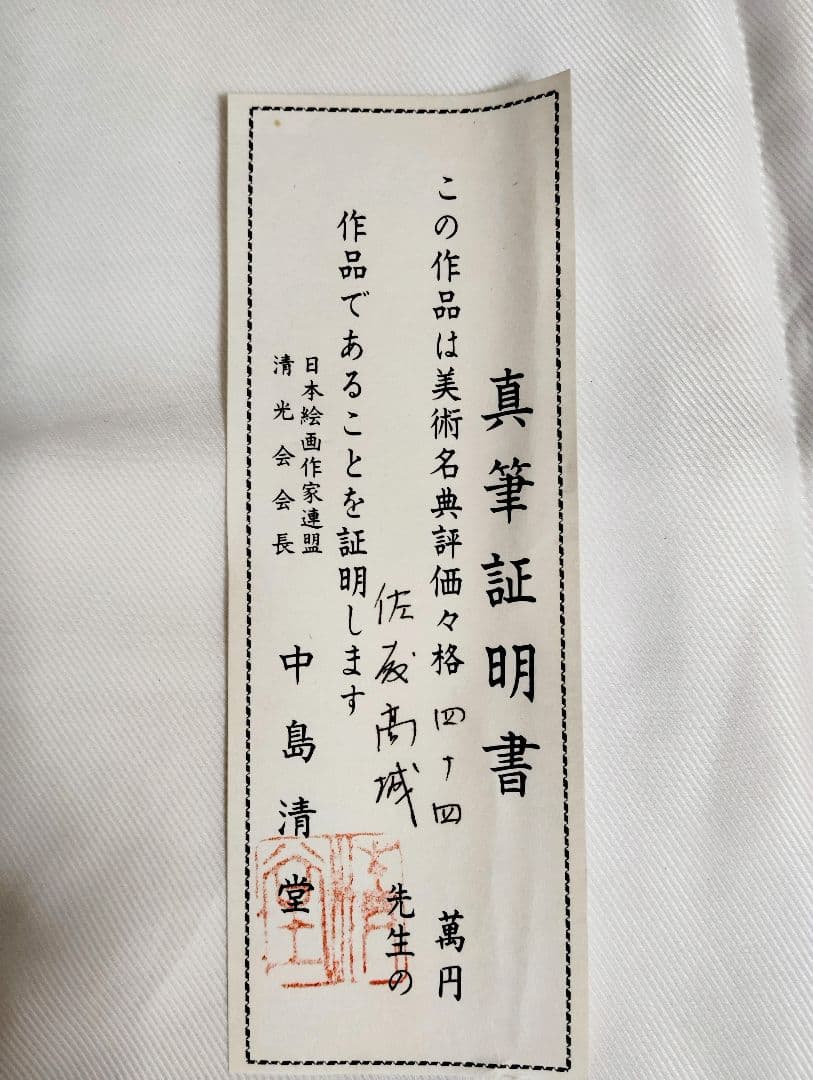 真筆証明書
この作品は美術名典評価々格四十四萬円
佐 高城先生の
作品であることを証明します
日本絵画作家連盟
清光会会長
中島清堂